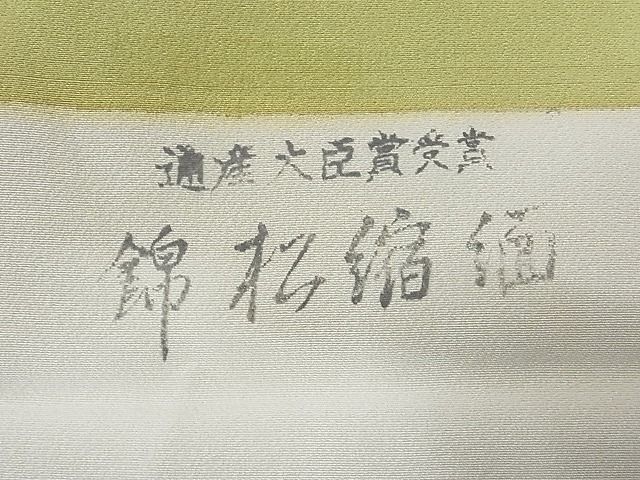 通産大臣賞受賞
錦松縮緬